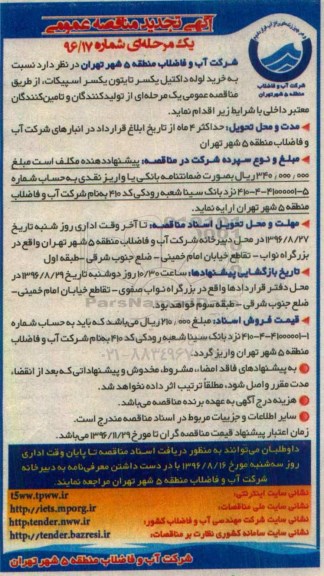 آگهی تجدید مناقصه عمومی
یک مرحله‌ای شماره ۹۶/۱۷
شرکت آب و فاضلاب
منطقه ۵ شهر تهران
شرکت آب و فاضلاب منطقه ۵ شهر تهران در نظر دارد نسبت
به خرید لوله داکتیل یکسر تایتون یکسر اسپیکات، از طریق
مناقصه عمومی یک مرحله‌ای از تولیدکنندگان و تامین‌کنندگان
معتبر داخلی با شرایط زیر اقدام نماید.
مدت و محل تحویل: حداکثر ۴ ماه از تاریخ ابلاغ قرارداد در انبارهای شرکت آب
و فاضلاب منطقه ۵ شهر تهران
مبلغ و نوع سپرده شرکت در مناقصه: پیشنهاددهنده مکلف است مبلغ
۳۴۰/۰۰۰/۰۰۰ ریال بصورت ضمانتنامه بانکی یا واریز نقدی به حساب شماره
نزد بانک سینا شعبه رودکی کد ۴۱۰ به نام شرکت آب و فاضلاب
منطقه ۵ شهر تهران ارایه نماید.
مهلت و محل تحویل اسناد مناقصه: تا آخر وقت اداری روز شنبه تاریخ
۱۳۹۶/۸/۲۷ در محل دبیرخانه شرکت آب و فاضلاب منطقه ۵ شهر تهران واقع در
بزرگراه نواب - تقاطع خیابان امام خمینی - ضلع جنوب شرقی - طبقه اول
تاریخ بازگشایی پیشنهادها: ساعت ۱۰/۳۰ روز دوشنبه تاریخ ۱۳۹۶/۸/۲۹ در
محل دفتر قراردادها واقع در بزرگراه نواب صفوی - تقاطع خیابان امام خمینی -
ضلع جنوب شرقی - طبقه سوم خواهد بود.
قیمت فروش اسناد: مبلغ ۲۱۰/۰۰۰ ریال می‌باشد که باید به حساب شماره
نزد بانک سینا شعبه رودکی کد ۴۱۰ به نام شرکت آب و فاضلاب
منطقه ۵ شهر تهران واریز گردد.
به پیشنهادهای فاقد امضا، مشروط، مخدوش و پیشنهاداتی که بعد از انقضا،
مدت مقرر واصل شود، مطلقا ترتیب اثر داده نخواهد شد.
هزینه درج آگهی به عهده برنده مناقصه می‌باشد.
سایر اطلاعات و جزییات مربوط در اسناد مناقصه مندرج است.
زمان اعتبار پیشنهاد قیمت مناقصه گران تا مورخ ۱۳۹۶/۱۱/۲۹ می‌باشد.
داوطلبان می‌توانند به منظور دریافت اسناد مناقصه تا پایان وقت اداری
روز سه‌شنبه مورخ ۱۳۹۶/۸/۱۶ با در دست داشتن معرفی‌نامه به دبیرخانه
شرکت آب و فاضلاب منطقه ۵ شهر تهران مراجعه نمایند.
نشانی سایت اینترنتی: t5ww.tpww.ir
نشانی سایت ملی مناقصات: http://iets.mporg.ir
نشانی سایت شرکت مهندسی آب و فاضلاب کشور: http:tender.nww.ir
نشانی سایت سامانه کشوری نظارت بر مناقصات: http://tender.bazresi.ir
شرکت آب و فاضلاب منطقه ۵ شهر تهران